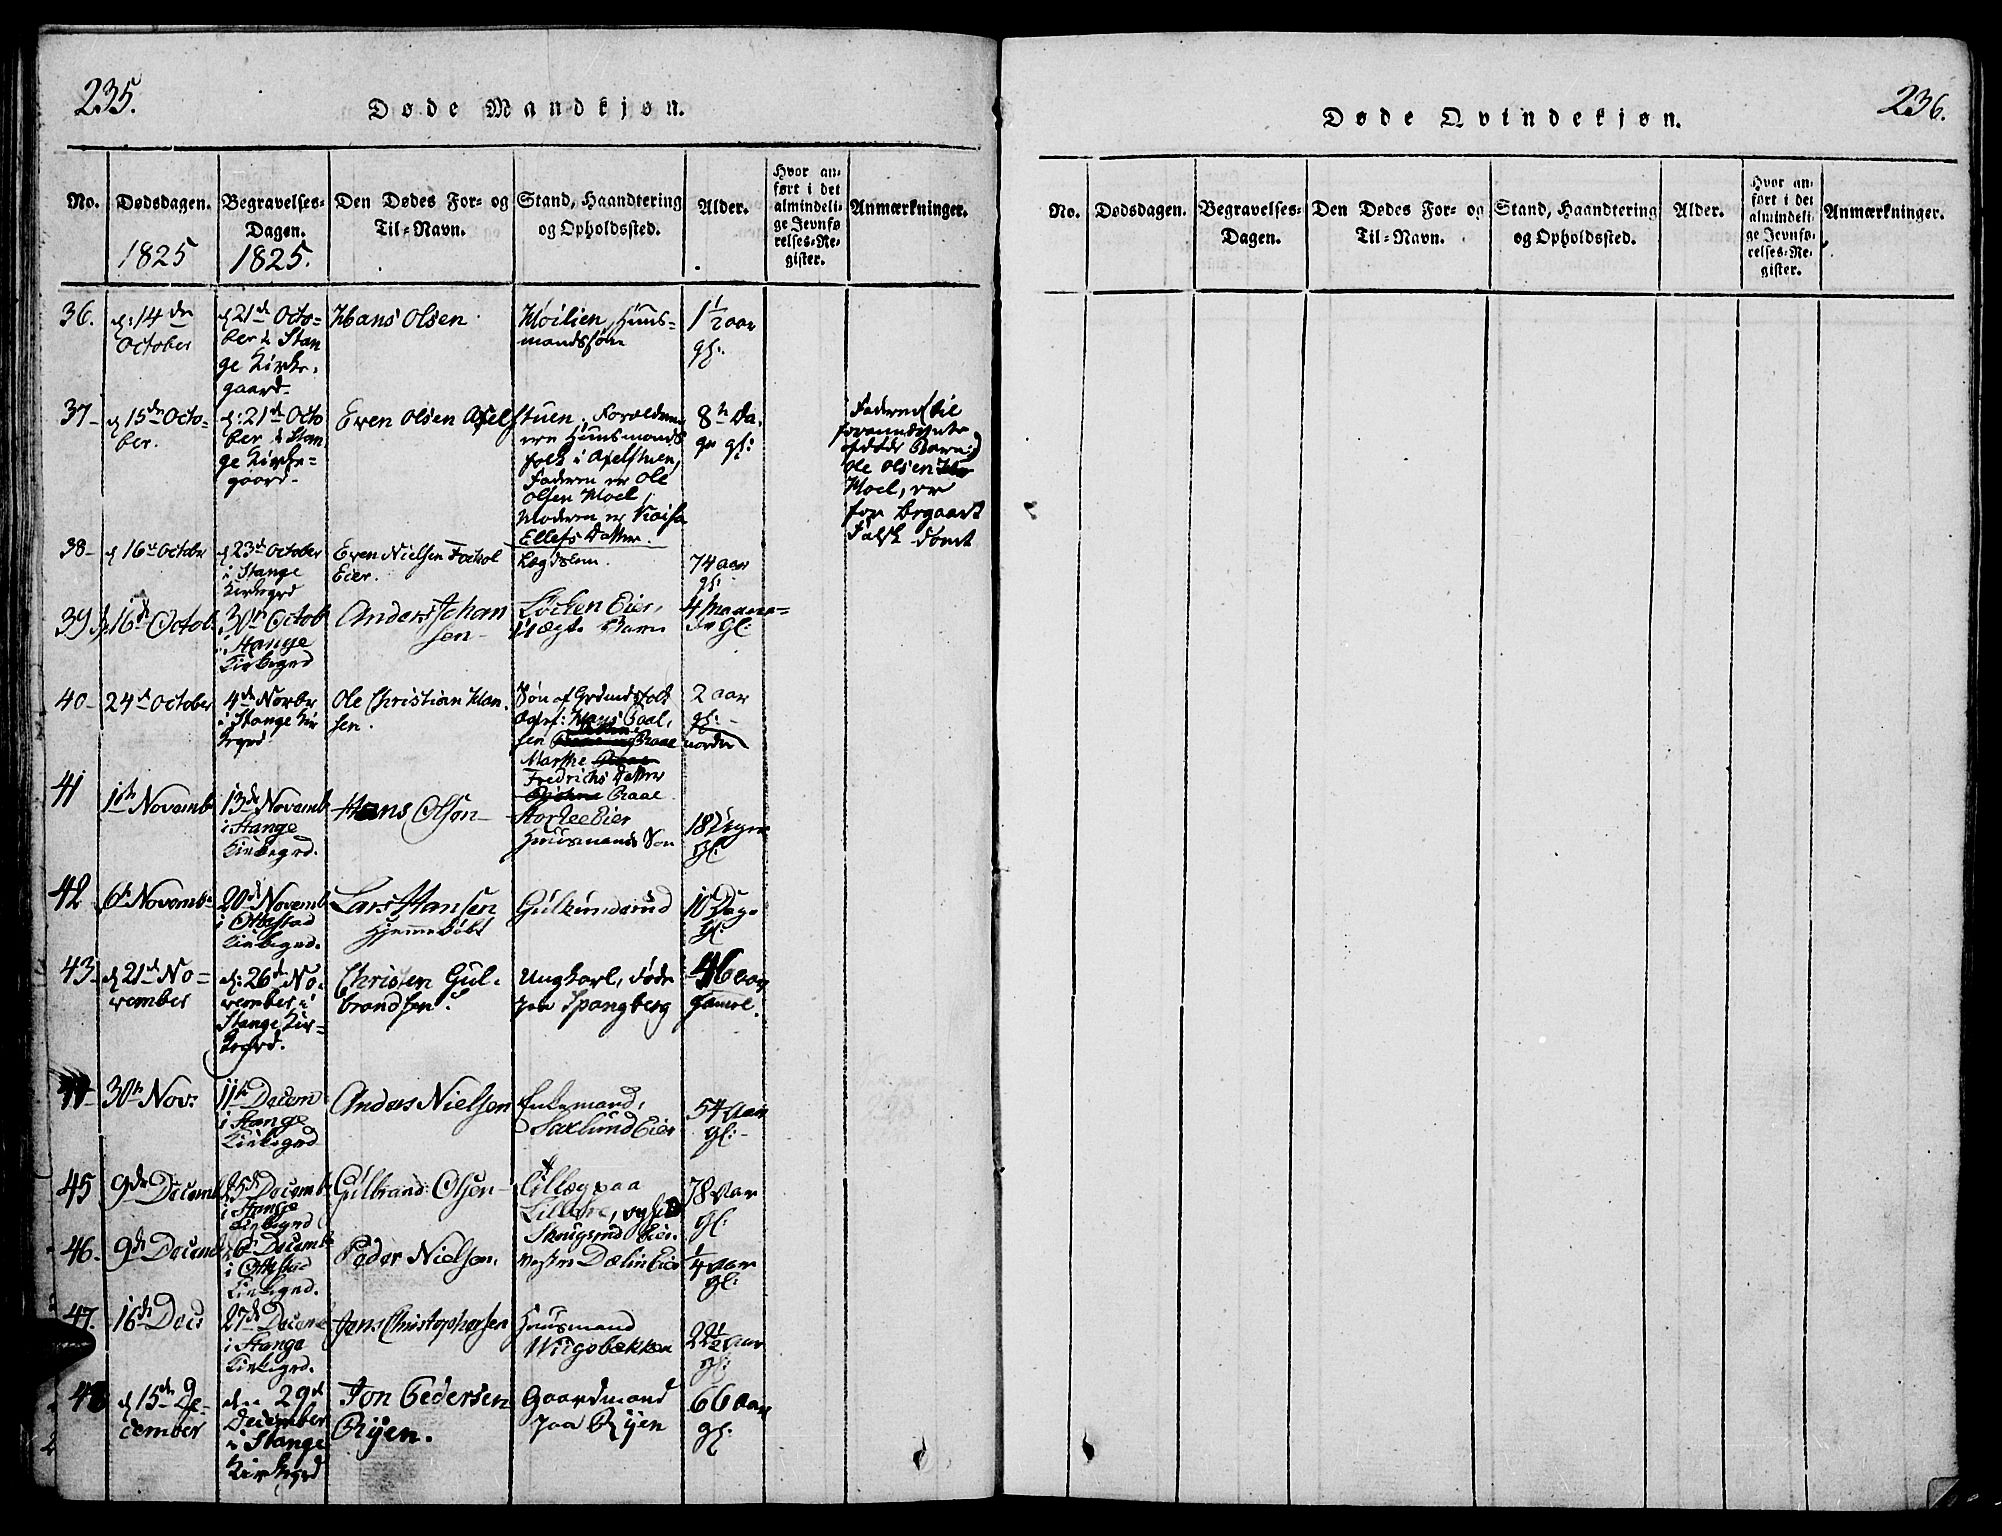 235.
Døde Mandkjøn.
No.
Dødsdagen.
1825
Begravelses-
Dagen.
1825.
Den Dødes For- og
Til-Navn.
Stand, Haandtering
og Opholdssted.
Alder.
Hvor an-
ført i det
almindeli-
ge Jevnfø-
relses-Re-
gister.
Anmærkninger.
36.
d: 14de
October
d 21de Octo-
ber i Stan
ge Kirke-
gaard.
Hans Olsen
Huus-
mandssøn
1 1/2 aar
gl:
37-
d 15de Octo-
ber.
d: 21de Octo
ber i Stan
ge Kirke-
gaard-
Even Olsen Axelstuen
Forældrene
ere Huusmands
folk i Axelstuen,
Faderen er Ole
Olsen Moel,
Moderen er
Ellefs Datter.
8te Da-
ge gl:
Faderen til
Barn
Ole Olsen
Moel, er
for begaaet
Falsk dømt
38-
d 16de October
d 23de October
i Stange
Kirkegrd
Even Nielsen
Eier.
Lægdslem.
74 aar
gl:
39
16de Octob.
30te Octob
i Stange
Kirkegrd
Anders Johan
sen-
Løcken Eier,
Uægte Barn
4 Maane-
der gl:
40-
24de October
4de Novbr
i Stange Kir
kegrd
Ole Christian Han
sen.
Søn af Grdmdsfolk
Hans Paal
sen
Marthe
Fredrichs Datter
2 aar
gl:
41
1ste Novemb
13de Novemb
i Stange
Kirkegrd.
Hans Olsøn-
Eier
Huusmands Søn
18
gl:
42
6te Novemb
20de Novemb
i Ottestad
Kirkegrd.
Lars Hansen
Hjemmedøbt
Gulkinderud
10 Dage
gl:
43-
d 21de No-
vember
d: 26de No-
vember i
Stange Kir-
kegrd.
Christen Gul-
brandsen.
Ungkarl, Født
paa Spangberg
46 aar
gamel.
44-
30te Nov:
11te Decem
i Stange
Kirkegrd
Anders Nielsen
Enkemand,
Saxlund Eier
54 Aar
gl:-
45
9de Decemb
25de Decemb
i Stange
Kirkegrd
Gulbrand Olsen-
paa
Skougsrud Eier.
78 Aar
gl:
46.
9de Decemb
Decemb
i Ottestad
Kirkegrd.
Peder Nielsen.
Vestre Dælin Eier
1/4 Aar
gl:
47.
16de Dec:
27de Decem
i Stange
Kirkegrd.
Jens Christophersen
Huusmand
22 1/2 Aar
gl:
48
d 15de De-
cember
den 29de
December
i Stange
Kirkegrd
Jon Pedersen
Ryen.
Gaardmand
paa Ryen
66 aar
gl:
236.
Døde Qvindekjøn.
No.
Dødsdagen.
Begravelses-
Dagen.
Den Dødes For- og
Til-Navn.
Stand, Haandtering
og Opholdssted.
Alder.
Hvor an-
ført i det
almindeli-
ge Jevnfø-
relses-Re-
gister.
Anmærkninger.